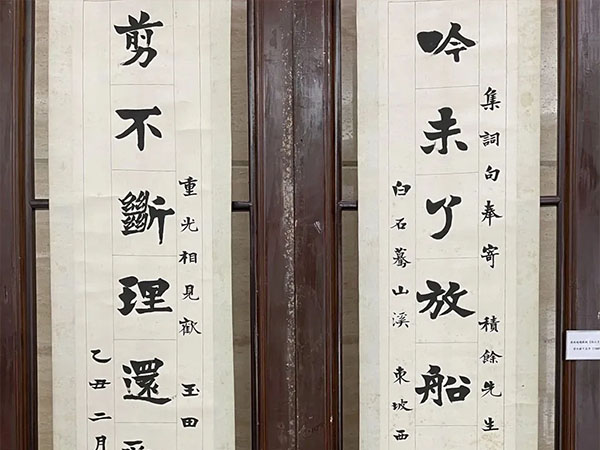 集詞句奉寄 積餘先生
吟未了放船
白石驀山溪 東坡西
重光相見歡 玉田
剪不斷理還
乙丑二月